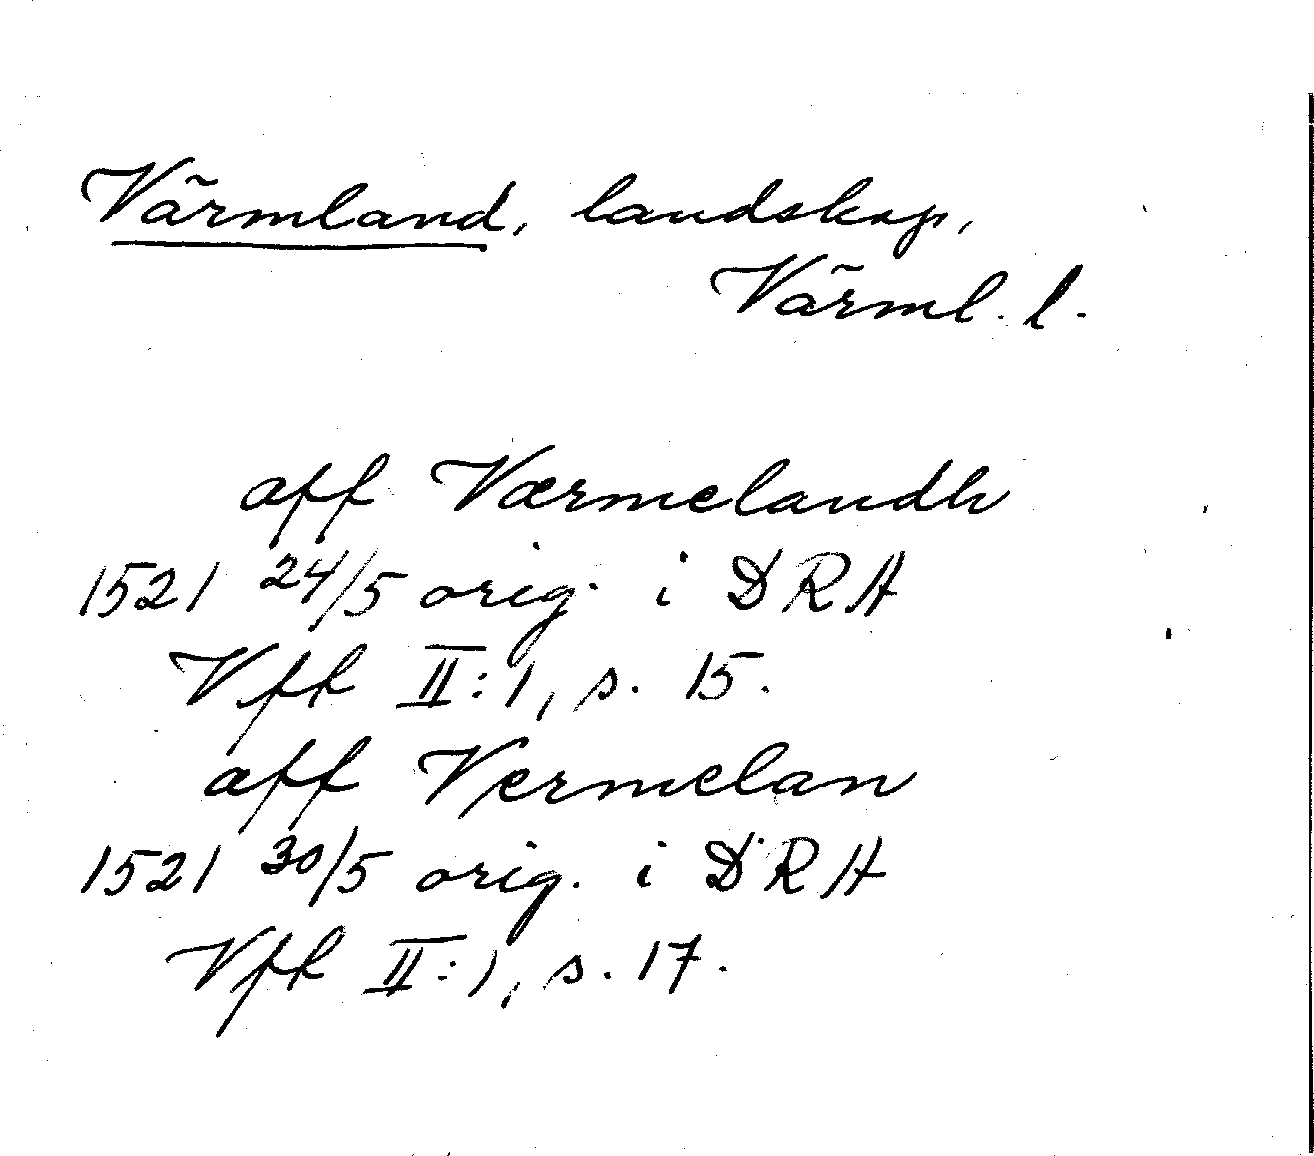 Värmland, landskap,
Värml. l.
aff Værmelandh
1521 24/5 orig. i DRA
Vfk II:1, s. 15.
aff Vermelan
1521 30/5 orig. i DRA
Vfk II:1, s. 17.